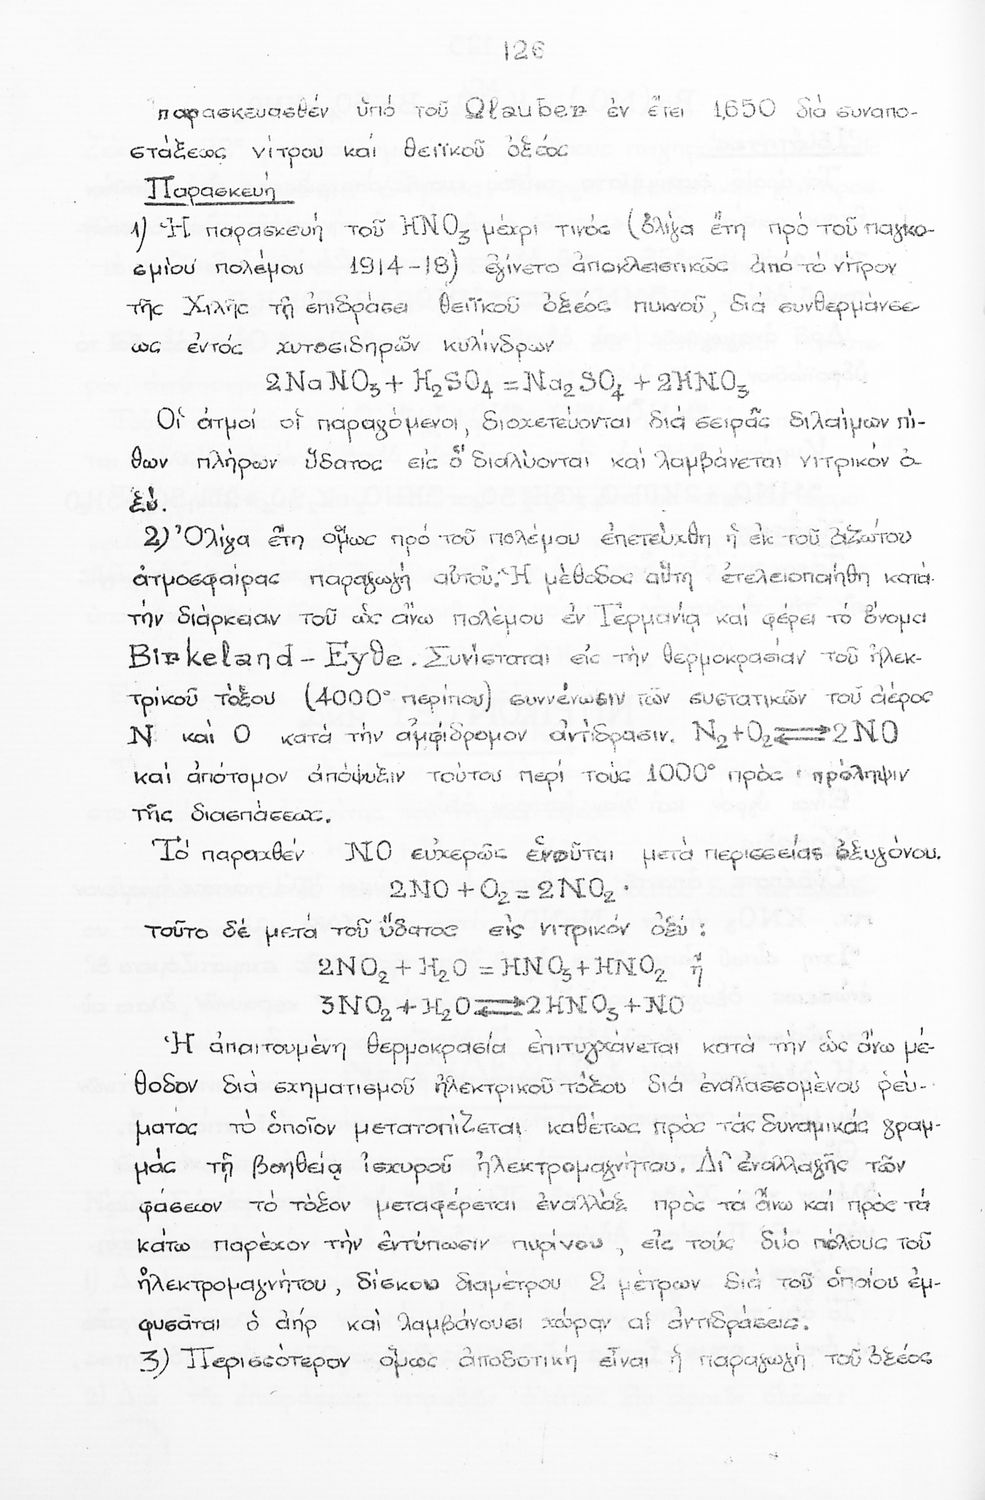 126
παρασκευασθέν ὑπό τοῦ Glauber ἐν ἔτει 1650 διά συναπο-
στάξεως νίτρου καί θειϊκοῦ ὀξέος
Παρασκευή
1) Ἡ παρασκευή τοῦ HNO3 μέχρι τινός (ὀλίγα ἔτη πρό τοῦ παγκο-
σμίου πολέμου 1914-18) ἐγίνετο ἀποκλειστικῶς ἀπό τό νίτρον
τῆς Χιλῆς τῇ ἐπιδράσει θειϊκοῦ ὀξέος πυκνοῦ, διά συνθερμάνσε-
ως ἐντός χυτοσιδηρῶν κυλίνδρων
2NaNO3 + H2SO4 = Na2SO4 + 2HNO3
Οἱ ἀτμοί οἱ παραγόμενοι, διοχετεύονται διά σειρᾶς διλαίμων πί-
θων πλήρων ὕδατος εἰς ὅ διαλύονται καί λαμβάνεται νιτρικόν ὀ-
ξύ.
2) Ὀλίγα ἔτη ὅμως πρό τοῦ πολέμου ἐπετεύχθη ἡ ἐκ τοῦ ἀζώτου
ἀτμοσφαίρας παραγωγή αὐτοῦ. Ἡ μέθοδος αὕτη ἐτελειοποιήθη κατά
τήν διάρκειαν τοῦ ὡς ἄνω πολέμου ἐν Γερμανίᾳ καί φέρει τό ὄνομα
Birkeland - Eyde. Συνίσταται εἰς τήν θερμοκρασίαν τοῦ ἠλεκ-
τρικοῦ τόξου (4000° περίπου) συνένωσιν τῶν συστατικῶν τοῦ ἀέρος
N καί O κατά τήν ἀμφίδρομον ἀντίδρασιν. N2+O2⇌2NO
καί ἀπότομον ἀπόψυξιν τούτου περί τούς 1000° πρός πρόληψιν
τῆς διασπάσεως.
Τό παραχθέν NO εὐχερῶς ἑνοῦται μετά περισσείας ὀξυγόνου.
2NO + O2 = 2NO2·
τοῦτο δέ μετά τοῦ ὕδατος εἰς νιτρικόν ὀξύ:
2NO2 + H2O = HNO3 + HNO2 ἤ
3NO2 + H2O⇌2HNO3 + NO
Ἡ ἀπαιτουμένη θερμοκρασία ἐπιτυγχάνεται κατά τήν ὡς ἄνω μέ-
θοδον διά σχηματισμοῦ ἠλεκτρικοῦ τόξου διά ἐναλασσομένου ρεύ-
ματος τό ὁποῖον μετατοπίζεται καθέτως πρός τάς δυναμικάς γραμ-
μάς τῇ βοηθείᾳ ἰσχυροῦ ἠλεκτρομαγνήτου. Δι' ἐναλλαγῆς τῶν
φάσεων τό τόξον μεταφέρεται ἐναλλάξ πρός τά ἄνω καί πρός τά
κάτω παρέχον τήν ἐντύπωσιν πυρίνου, εἰς τούς δύο πόλους τοῦ
ἠλεκτρομαγνήτου, δίσκου διαμέτρου 2 μέτρων διά τοῦ ὁποίου ἐμ-
φυσᾶται ὁ ἀήρ καί λαμβάνουσι χώραν αἱ ἀντιδράσεις.
3) Περισσότερον ὅμως ἀποδοτική εἶναι ἡ παραγωγή τοῦ ὀξέος